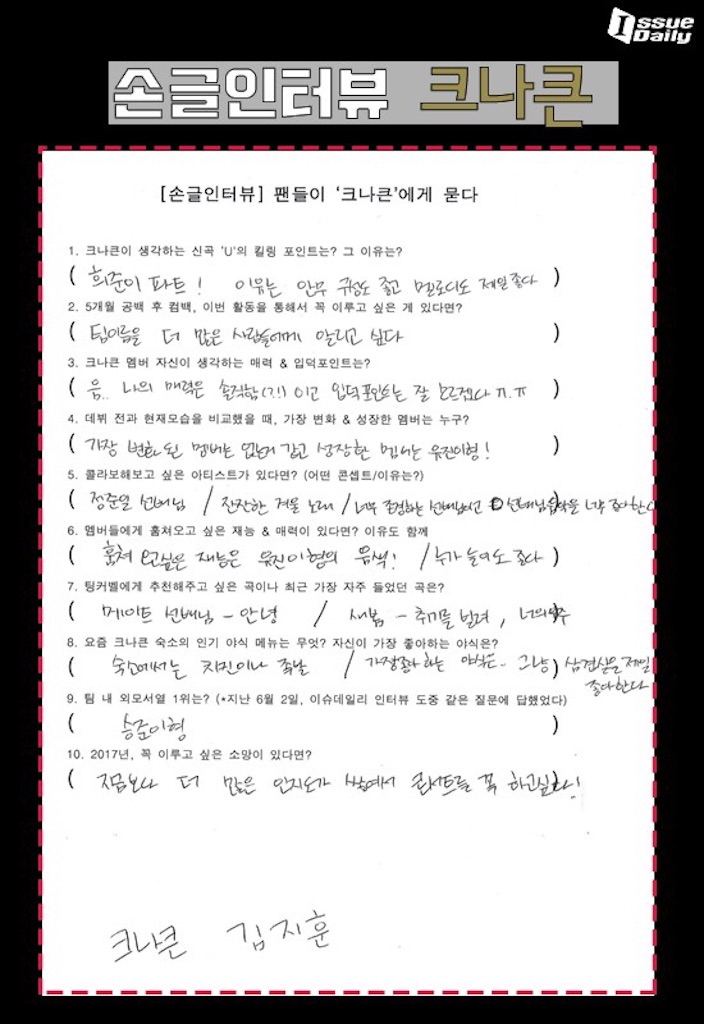 Issue Daily
손글인터뷰 크나큰
[손글인터뷰] 팬들이 '크나큰'에게 묻다
1. 크나큰이 생각하는 신곡 'U'의 킬링 포인트는? 그 이유는?
( 희준이 파트! 이유는 안무 구성도 좋고 멜로디도 제일 좋다 )
2. 5개월 공백 후 컴백, 이번 활동을 통해서 꼭 이루고 싶은 게 있다면?
( 팀이름을 더 많은 사람들에게 알리고 싶다 )
3. 크나큰 멤버 자신이 생각하는 매력 & 입덕포인트는?
( 음.. 나의 매력은 솔직함(?!) 이고 입덕포인트는 잘 모르겠다 ㅠ.ㅠ )
4. 데뷔 전과 현재모습을 비교했을 때, 가장 변화 & 성장한 멤버는 누구?
( 가장 변화 된 멤버는 없는거 같고 성장한 멤버는 유진이형! )
5. 콜라보해보고 싶은 아티스트가 있다면? (어떤 콘셉트/이유는?)
( 정준일 선배님 / 잔잔한 겨울 노래 / 너무 존경하는 선배님이시고 선배님음악을 너무 좋아한다
6. 멤버들에게 훔쳐오고 싶은 재능 & 매력이 있다면? 이유도 함께
( 훔쳐 오고싶은 재능은 유진이형의 음색! / 누가 들어도 좋다 )
7. 팅커벨에게 추천해주고 싶은 곡이나 최근 가장 자주 들었던 곡은?
( 메이트 선배님 - 안녕 / 새봄 - 취기를 빌려, 너의우주
8. 요즘 크나큰 숙소의 인기 야식 메뉴는 무엇? 자신이 가장 좋아하는 야식은?
( 숙소에서는 치킨이나 족발 / 가장좋아하는 야식은.. 그냥 ) 삼겹살을 제일
좋아한다
9. 팀 내 외모서열 1위는? (*지난 6월 2일, 이슈데일리 인터뷰 도중 같은 질문에 답했었다)
( 승준이형 )
10. 2017년, 꼭 이루고 싶은 소망이 있다면?
( 지금보다 더 많은 인지도가 쌓여서 콘서트를 꼭 하고싶다!
크나큰 김지훈